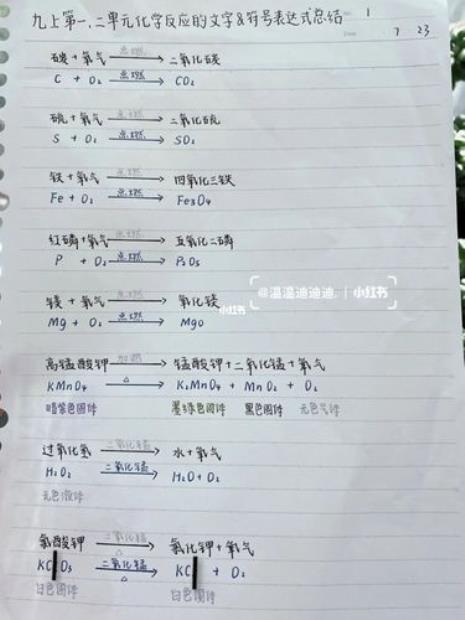 九上第一.二单元化学反应的文字&符号表达式总结 1
7 23
碳 + 氧气 点燃 二氧化碳
C + O₂ 点燃 CO₂
硫 + 氧气 点燃 二氧化硫
S + O₂ 点燃 SO₂
铁 + 氧气 点燃 四氧化三铁
Fe + O₂ 点燃 Fe₃O₄
红磷 + 氧气 点燃 五氧化二磷
P + O₂ 点燃 P₂O₅
@温温迪迪迪. | 小红书
小红书
镁 + 氧气 点燃 氧化镁
Mg + O₂ 点燃 MgO
高锰酸钾 加热 锰酸钾 + 二氧化锰 + 氧气
KMnO₄ △ K₂MnO₄ + MnO₂ + O₂
暗紫色固体 墨绿色固体 黑色固体 无色气体
过氧化氢 二氧化锰 水 + 氧气
H₂O₂ 二氧化锰 H₂O + O₂
无色液体
氯酸钾 二氧化锰 △ 氯化钾 + 氧气
KClO₃ 二氧化锰 △ KCl + O₂
白色固体 白色固体